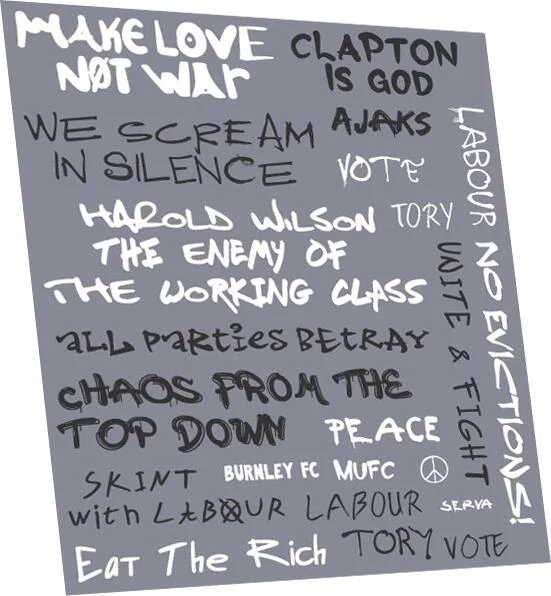 MAKE LOVE
NØT WAr
CLAPTON
IS GOD
AJAKS
WE SCREAM
IN SILENCE
VOTE
TORY
LABOUR
HAROLD WILSON
THE ENEMY OF
THE WORKING CLASS
NO EVICTIONS!
UNITE & FIGHT
aLL ParTies BETRAY
cHAOS FROM THE
TOP DOWN
PEACE
SKINT
BURNLEY FC
MUFC
with LABOUR
LABOUR
SERVA
Eat The Rich
TORY VOTE